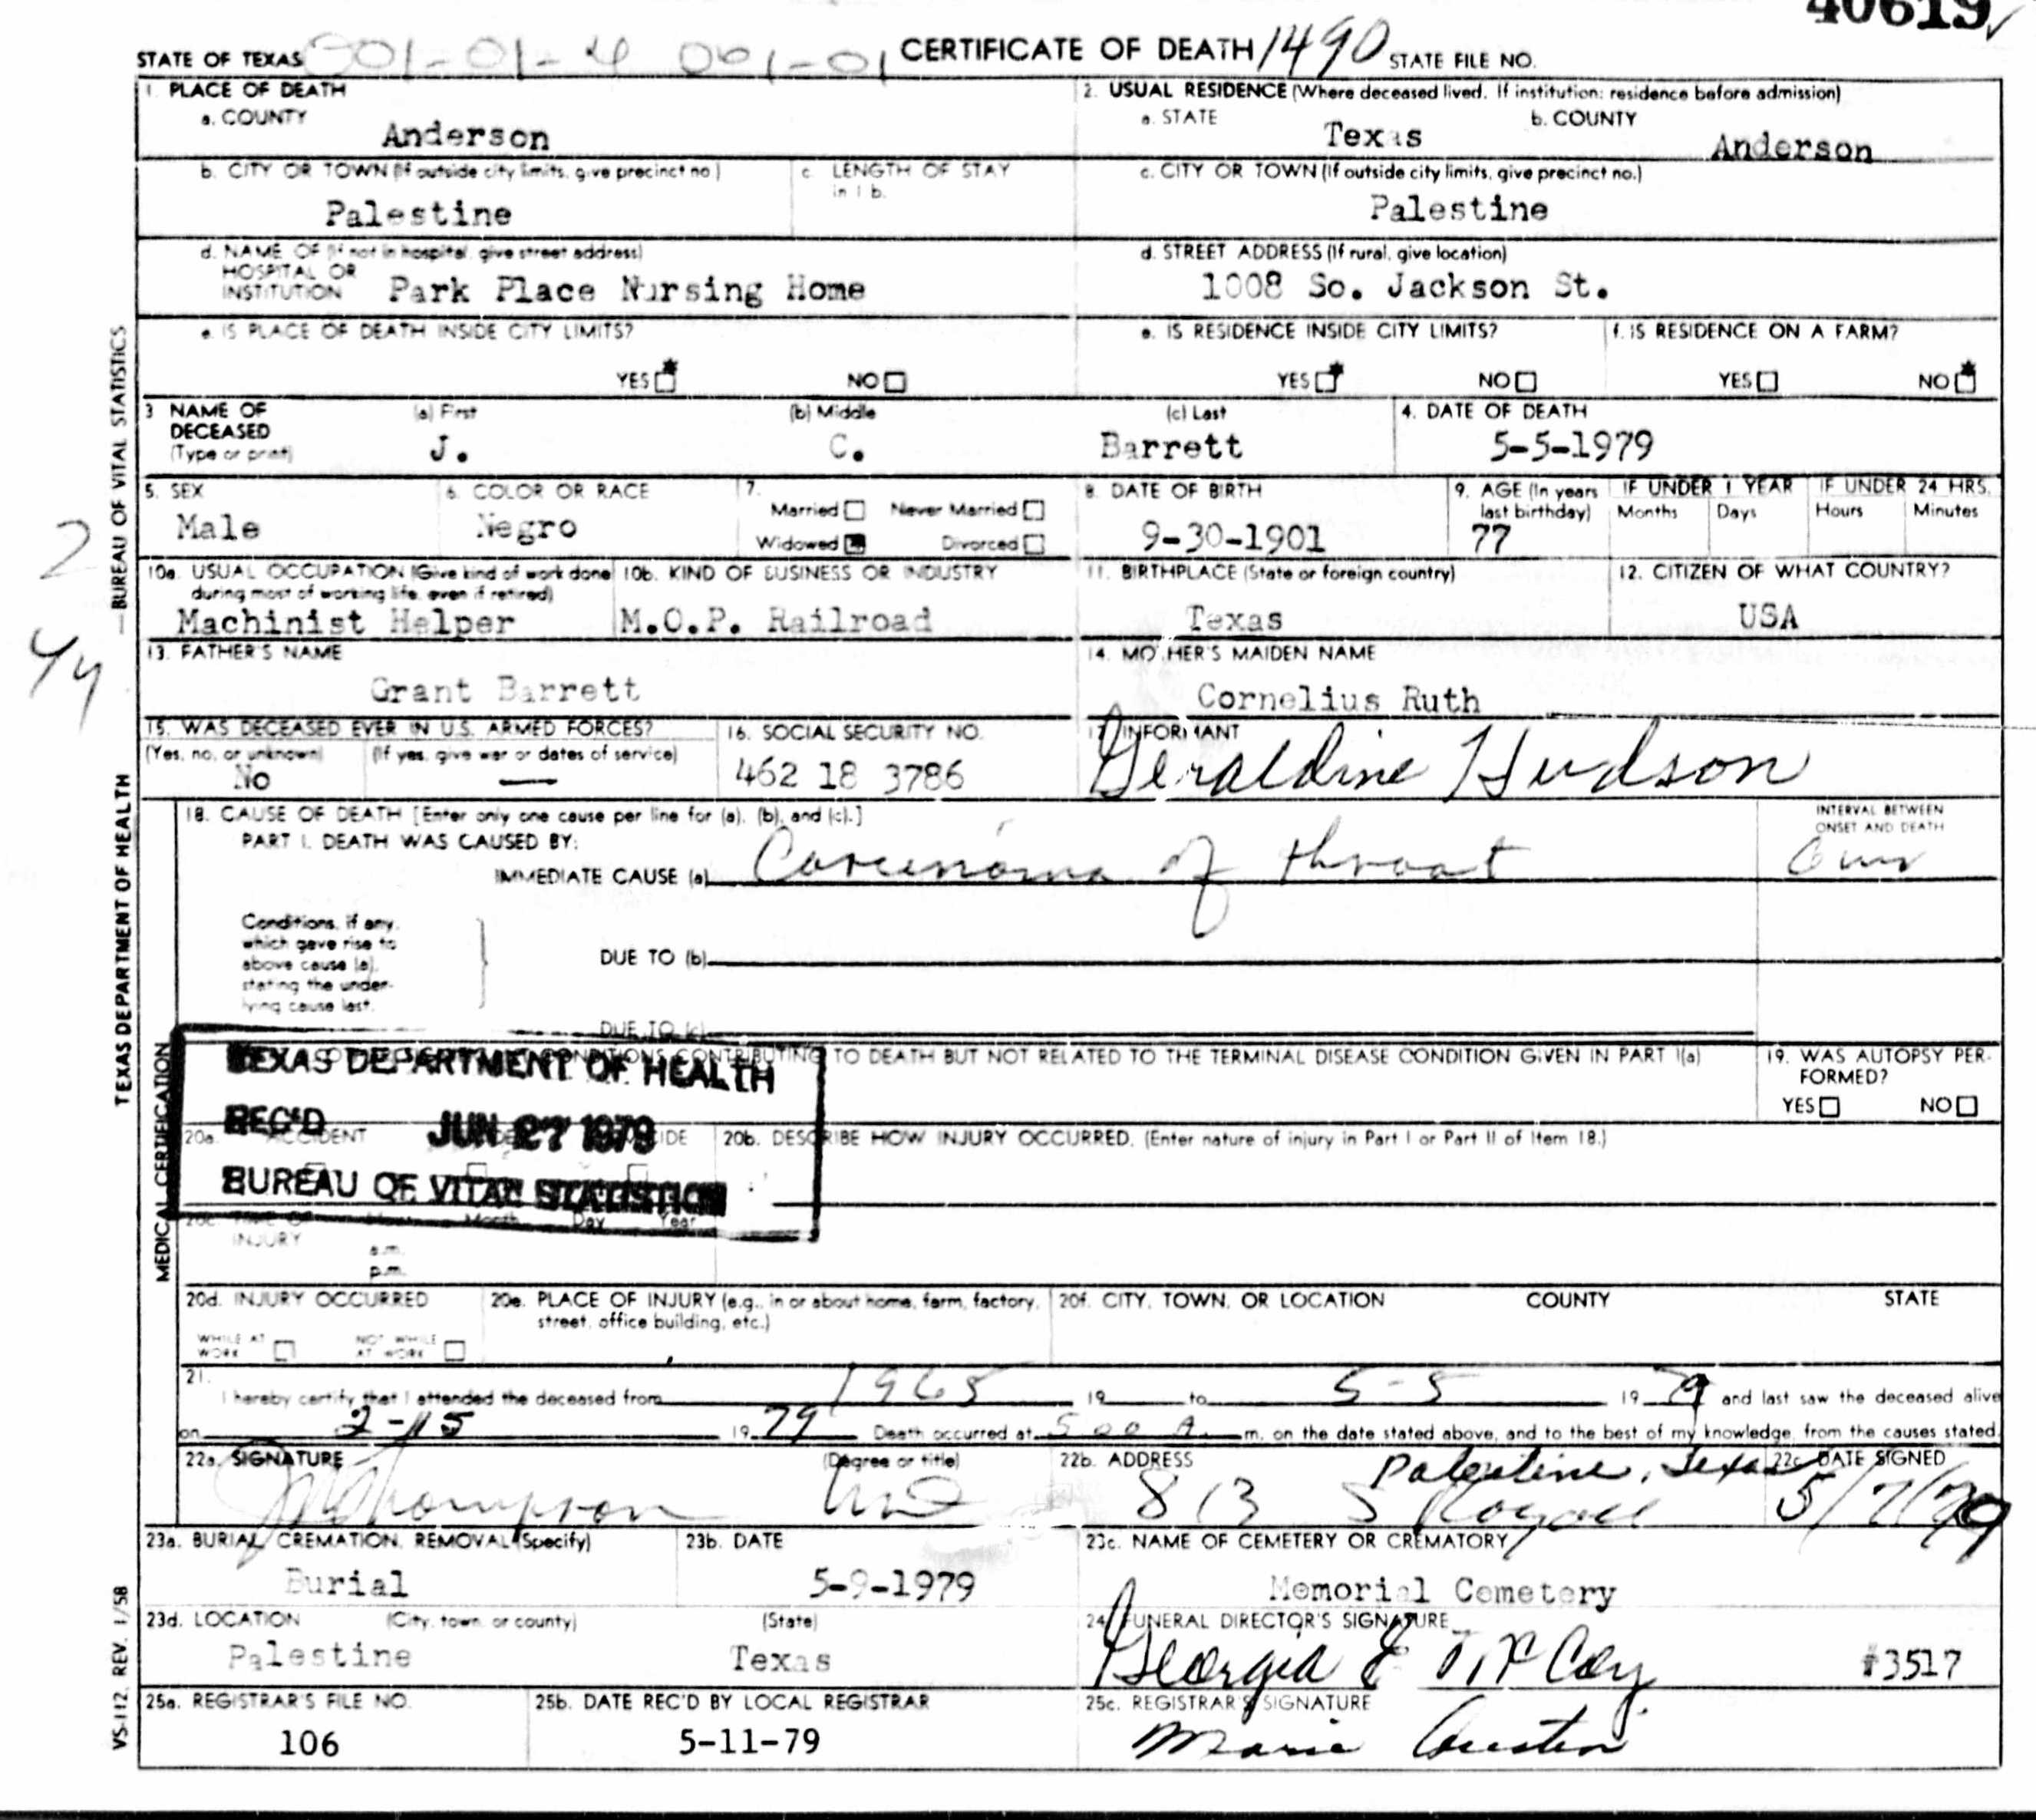 40619
STATE OF TEXAS 001-01-4 001-01 CERTIFICATE OF DEATH 1490 STATE FILE NO.
1. PLACE OF DEATH
a. COUNTY
Anderson
2. USUAL RESIDENCE (Where deceased lived. If institution: residence before admission)
a. STATE
Texas
b. COUNTY
Anderson
b. CITY OR TOWN (If outside city limits, give precinct no.)
Palestine
c. LENGTH OF STAY
in 1 b.
c. CITY OR TOWN (If outside city limits, give precinct no.)
Palestine
d. NAME OF (If not in hospital, give street address)
HOSPITAL OR
INSTITUTION Park Place Nursing Home
d. STREET ADDRESS (If rural, give location)
1008 So. Jackson St.
e. IS PLACE OF DEATH INSIDE CITY LIMITS?
YES NO
e. IS RESIDENCE INSIDE CITY LIMITS?
YES NO
f. IS RESIDENCE ON A FARM?
YES NO
3 NAME OF
DECEASED
(Type or print)
(a) First
J.
(b) Middle
C.
(c) Last
Barrett
4. DATE OF DEATH
5-5-1979
5. SEX
Male
6. COLOR OR RACE
Negro
7.
Married Never Married
Widowed Divorced
8. DATE OF BIRTH
9-30-1901
9. AGE (In years
last birthday)
77
IF UNDER 1 YEAR
Months Days
IF UNDER 24 HRS.
Hours Minutes
10a. USUAL OCCUPATION (Give kind of work done
during most of working life, even if retired)
Machinist Helper
10b. KIND OF BUSINESS OR INDUSTRY
M.O.P. Railroad
11. BIRTHPLACE (State or foreign country)
Texas
12. CITIZEN OF WHAT COUNTRY?
USA
13. FATHER'S NAME
Grant Barrett
14. MOTHER'S MAIDEN NAME
Cornelius Ruth
15. WAS DECEASED EVER IN U.S. ARMED FORCES?
(Yes, no, or unknown) (If yes, give war or dates of service)
No —
16. SOCIAL SECURITY NO.
462 18 3786
17. INFORMANT
Geraldine Hudson
18. CAUSE OF DEATH [Enter only one cause per line for (a), (b), and (c).]
PART I. DEATH WAS CAUSED BY:
IMMEDIATE CAUSE (a) Carcinoma of throat
INTERVAL BETWEEN
ONSET AND DEATH
Conditions, if any,
which gave rise to
above cause (a),
stating the under-
lying cause last.
DUE TO (b)
DUE TO (c)
CONDITIONS CONTRIBUTING TO DEATH BUT NOT RELATED TO THE TERMINAL DISEASE CONDITION GIVEN IN PART I(a)
19. WAS AUTOPSY PER-
FORMED?
YES NO
TEXAS DEPARTMENT OF HEALTH
REC'D JUN 27 1979
BUREAU OF VITAL STATISTICS
20a. ACCIDENT
20b. DESCRIBE HOW INJURY OCCURRED. (Enter nature of injury in Part I or Part II of Item 18.)
20c. TIME OF Hour Month Day Year
INJURY
a.m.
p.m.
20d. INJURY OCCURRED
WHILE AT
WORK
NOT WHILE
AT WORK
20e. PLACE OF INJURY (e.g., in or about home, farm, factory,
street, office building, etc.)
20f. CITY, TOWN, OR LOCATION COUNTY STATE
21.
I hereby certify that I attended the deceased from 1965 19 to 5-5 19 79 and last saw the deceased alive
on 2-15 19 79 Death occurred at 5 00 A. m. on the date stated above, and to the best of my knowledge, from the causes stated.
22a. SIGNATURE (Degree or title)
Thompson MD
22b. ADDRESS
Palestine, Texas
813 S Royall
22c. DATE SIGNED
5/7/79
23a. BURIAL, CREMATION, REMOVAL (Specify)
Burial
23b. DATE
5-9-1979
23c. NAME OF CEMETERY OR CREMATORY
Memorial Cemetery
23d. LOCATION (City, town, or county) (State)
Palestine Texas
24. FUNERAL DIRECTOR'S SIGNATURE
Georgia E McCoy #3517
25a. REGISTRAR'S FILE NO.
106
25b. DATE REC'D BY LOCAL REGISTRAR
5-11-79
25c. REGISTRAR'S SIGNATURE
Marie Austin
2
44
TEXAS DEPARTMENT OF HEALTH —BUREAU OF VITAL STATISTICS
MEDICAL CERTIFICATION
VS-112, REV. 1/58